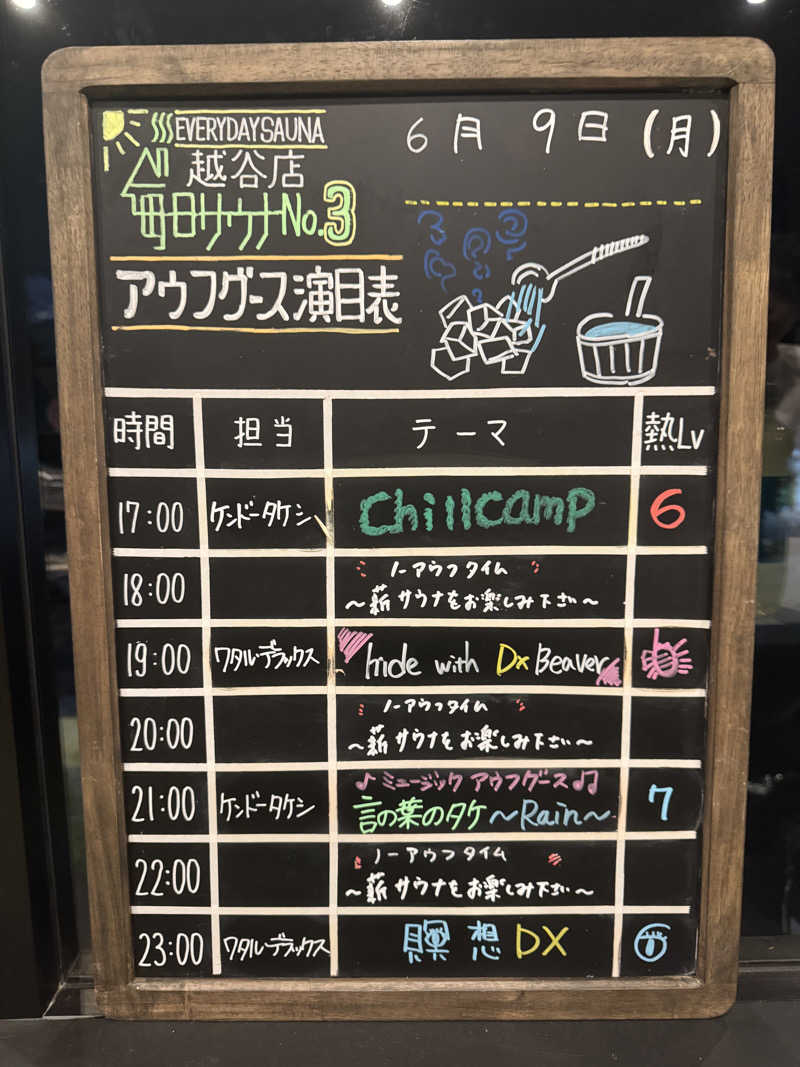 EVERYDAY SAUNA
越谷店
毎日サウナNo.3
6月 9日 (月)
アウフグース演目表
時間 担当 テーマ 熱Lv
17:00 ケンドータケシ Chillcamp 6
18:00 ノーアウフタイム
～薪サウナをお楽しみ下さい～
19:00 ワタルデラックス hide with Dx Beaver
20:00 ノーアウフタイム
～薪サウナをお楽しみ下さい～
21:00 ケンドータケシ ♪ミュージック アウフグース♪♫ 7
言の葉のタケ ～Rain～
22:00 ノーアウフタイム
～薪サウナをお楽しみ下さい～
23:00 ワタルデラックス 瞑想DX